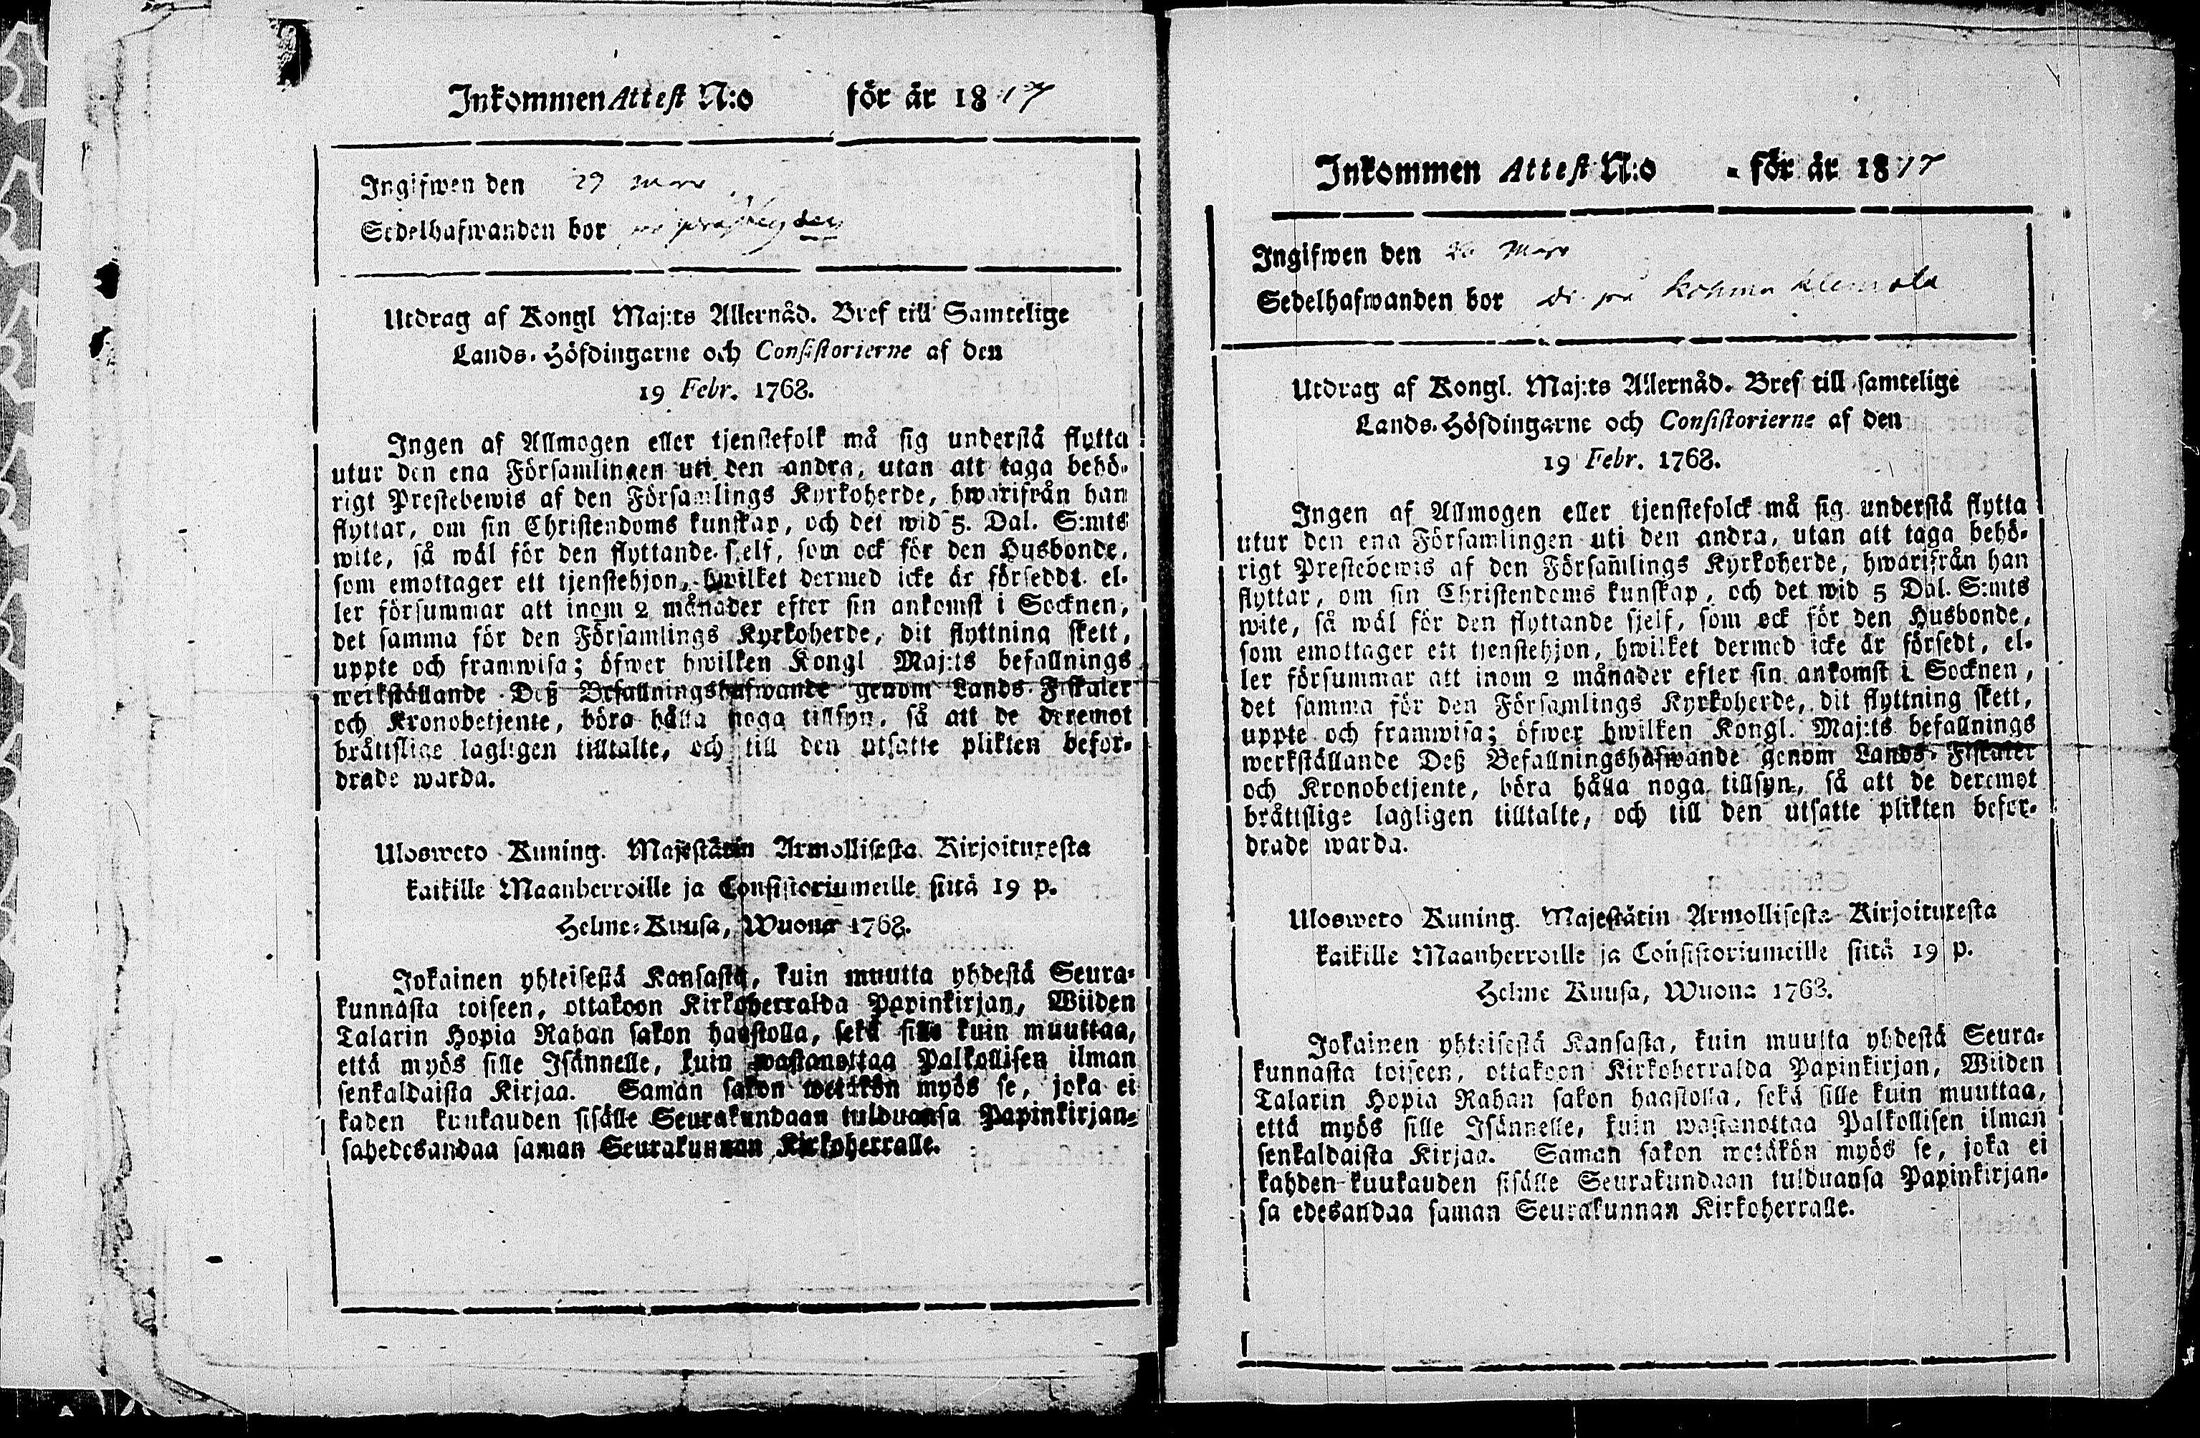 Inkommen Attest N:o för år 1817
Ingifwen den 29 Mars
Sedelhafwanden bor
Utdrag af Kongl Maj:ts Allernåd. Bref till Samtelige
Lands-Höfdingarne och Consistorierne af den
19 Febr. 1768.
Ingen af Allmogen eller tjenstefolk må sig understå flytta
utur den ena Församlingen uti den andra, utan att taga behö-
rigt Prestebewis af den Församlings Kyrkoherde, hwarifrån han
flyttar, om sin Christendoms kunskap, och det wid 5. Dal. S:mts
wite, så wäl för den flyttande sjelf, som ock för den Husbonde,
som emottager ett tjenstehjon, hwilket dermed icke är försedt. el-
ler försummar att inom 2 månader efter sin ankomst i Socknen,
det samma för den Församlings Kyrkoherde, dit flyttning skett,
uppte och framwisa; öfwer hwilken Kongl Maj:ts befallnings
werkställande Deß Befallningshafwande genom Lands-Fiskaler
och Kronobetjente, böra hålla noga tillsyn, så att de deremot
bråttslige lagligen tilltalte, och till den utsatte plikten befor-
drade warda.
Ulosweto Kuning. Majestätin Armollisesta Kirjoituxesta
kaikille Maanherroille ja Consistoriumeille siitä 19 p.
Helme-Kuusa, Wuona 1768.
Jokainen yhteisestä Kansasta, kuin muutta yhdestä Seura-
kunnasta toiseen, ottakoon Kirkoherralda Papinkirjan, Wiiden
Talarin Hopia Rahan sakon haastolla, sekä sille kuin muuttaa,
että myös sille Isännelle, kuin wastanottaa Palkollisen ilman
senkaldaista Kirjaa. Saman sakon wetäkön myös se, joka ei
kaden kuukauden sisälle Seurakundaan tulduansa Papinkirjan-
sahedesandaa saman Seurakunnan Kirkoherralle.
Inkommen Attest N:o - för år 1817
Ingifwen den Mars
Sedelhafwanden bor på
Utdrag af Kongl. Maj:ts Allernåd. Bref till samtelige
Lands-Höfdingarne och Consistorierne af den
19 Febr. 1768.
Ingen af Allmogen eller tjenstefolck må sig understå flytta
utur den ena Församlingen uti den andra, utan att taga behö-
rigt Prestebewis af den Församlings Kyrkoherde, hwarifrån han
flyttar, om sin Christendoms kunskap, och det wid 5 Dal. S:mts
wite, så wäl för den flyttande sjelf, som ock för den Husbonde,
som emottager ett tjenstehjon, hwilket dermed icke är försedt, el-
ler försummar att inom 2 månader efter sin ankomst i Socknen,
det samma för den Församlings Kyrkoherde, dit flyttning skett,
uppte och framwisa; öfwer hwilken Kongl. Maj:ts befallnings
werkställande Deß Befallningshafwande genom Lands-Fiskaler
och Kronobetjente, böra hålla noga tillsyn, så att de deremot
bråttslige lagligen tilltalte, och till den utsatte plikten befor-
drade warda.
Ulosweto Kuning. Majestätin Armollisesta Kirjoituxesta
kaikille Maanherroille ja Consistoriumeille siitä 19 p.
Helme Kuusa, Wuona 1768.
Jokainen yhteisestä Kansasta, kuin muutta yhdestä Seura-
kunnasta toiseen, ottakoon Kirkoherralda Papinkirjan, Wiiden
Talarin Hopia Rahan sakon haastolla, sekä sille kuin muuttaa,
että myös sille Isännelle, kuin wastanottaa Palkollisen ilman
senkaldaista Kirjaa. Saman sakon wetäkön myös se, joka ei
kahden kuukauden sisälle Seurakundaan tulduansa Papinkirjan-
sa edesandaa saman Seurakunnan Kirkoherralle.